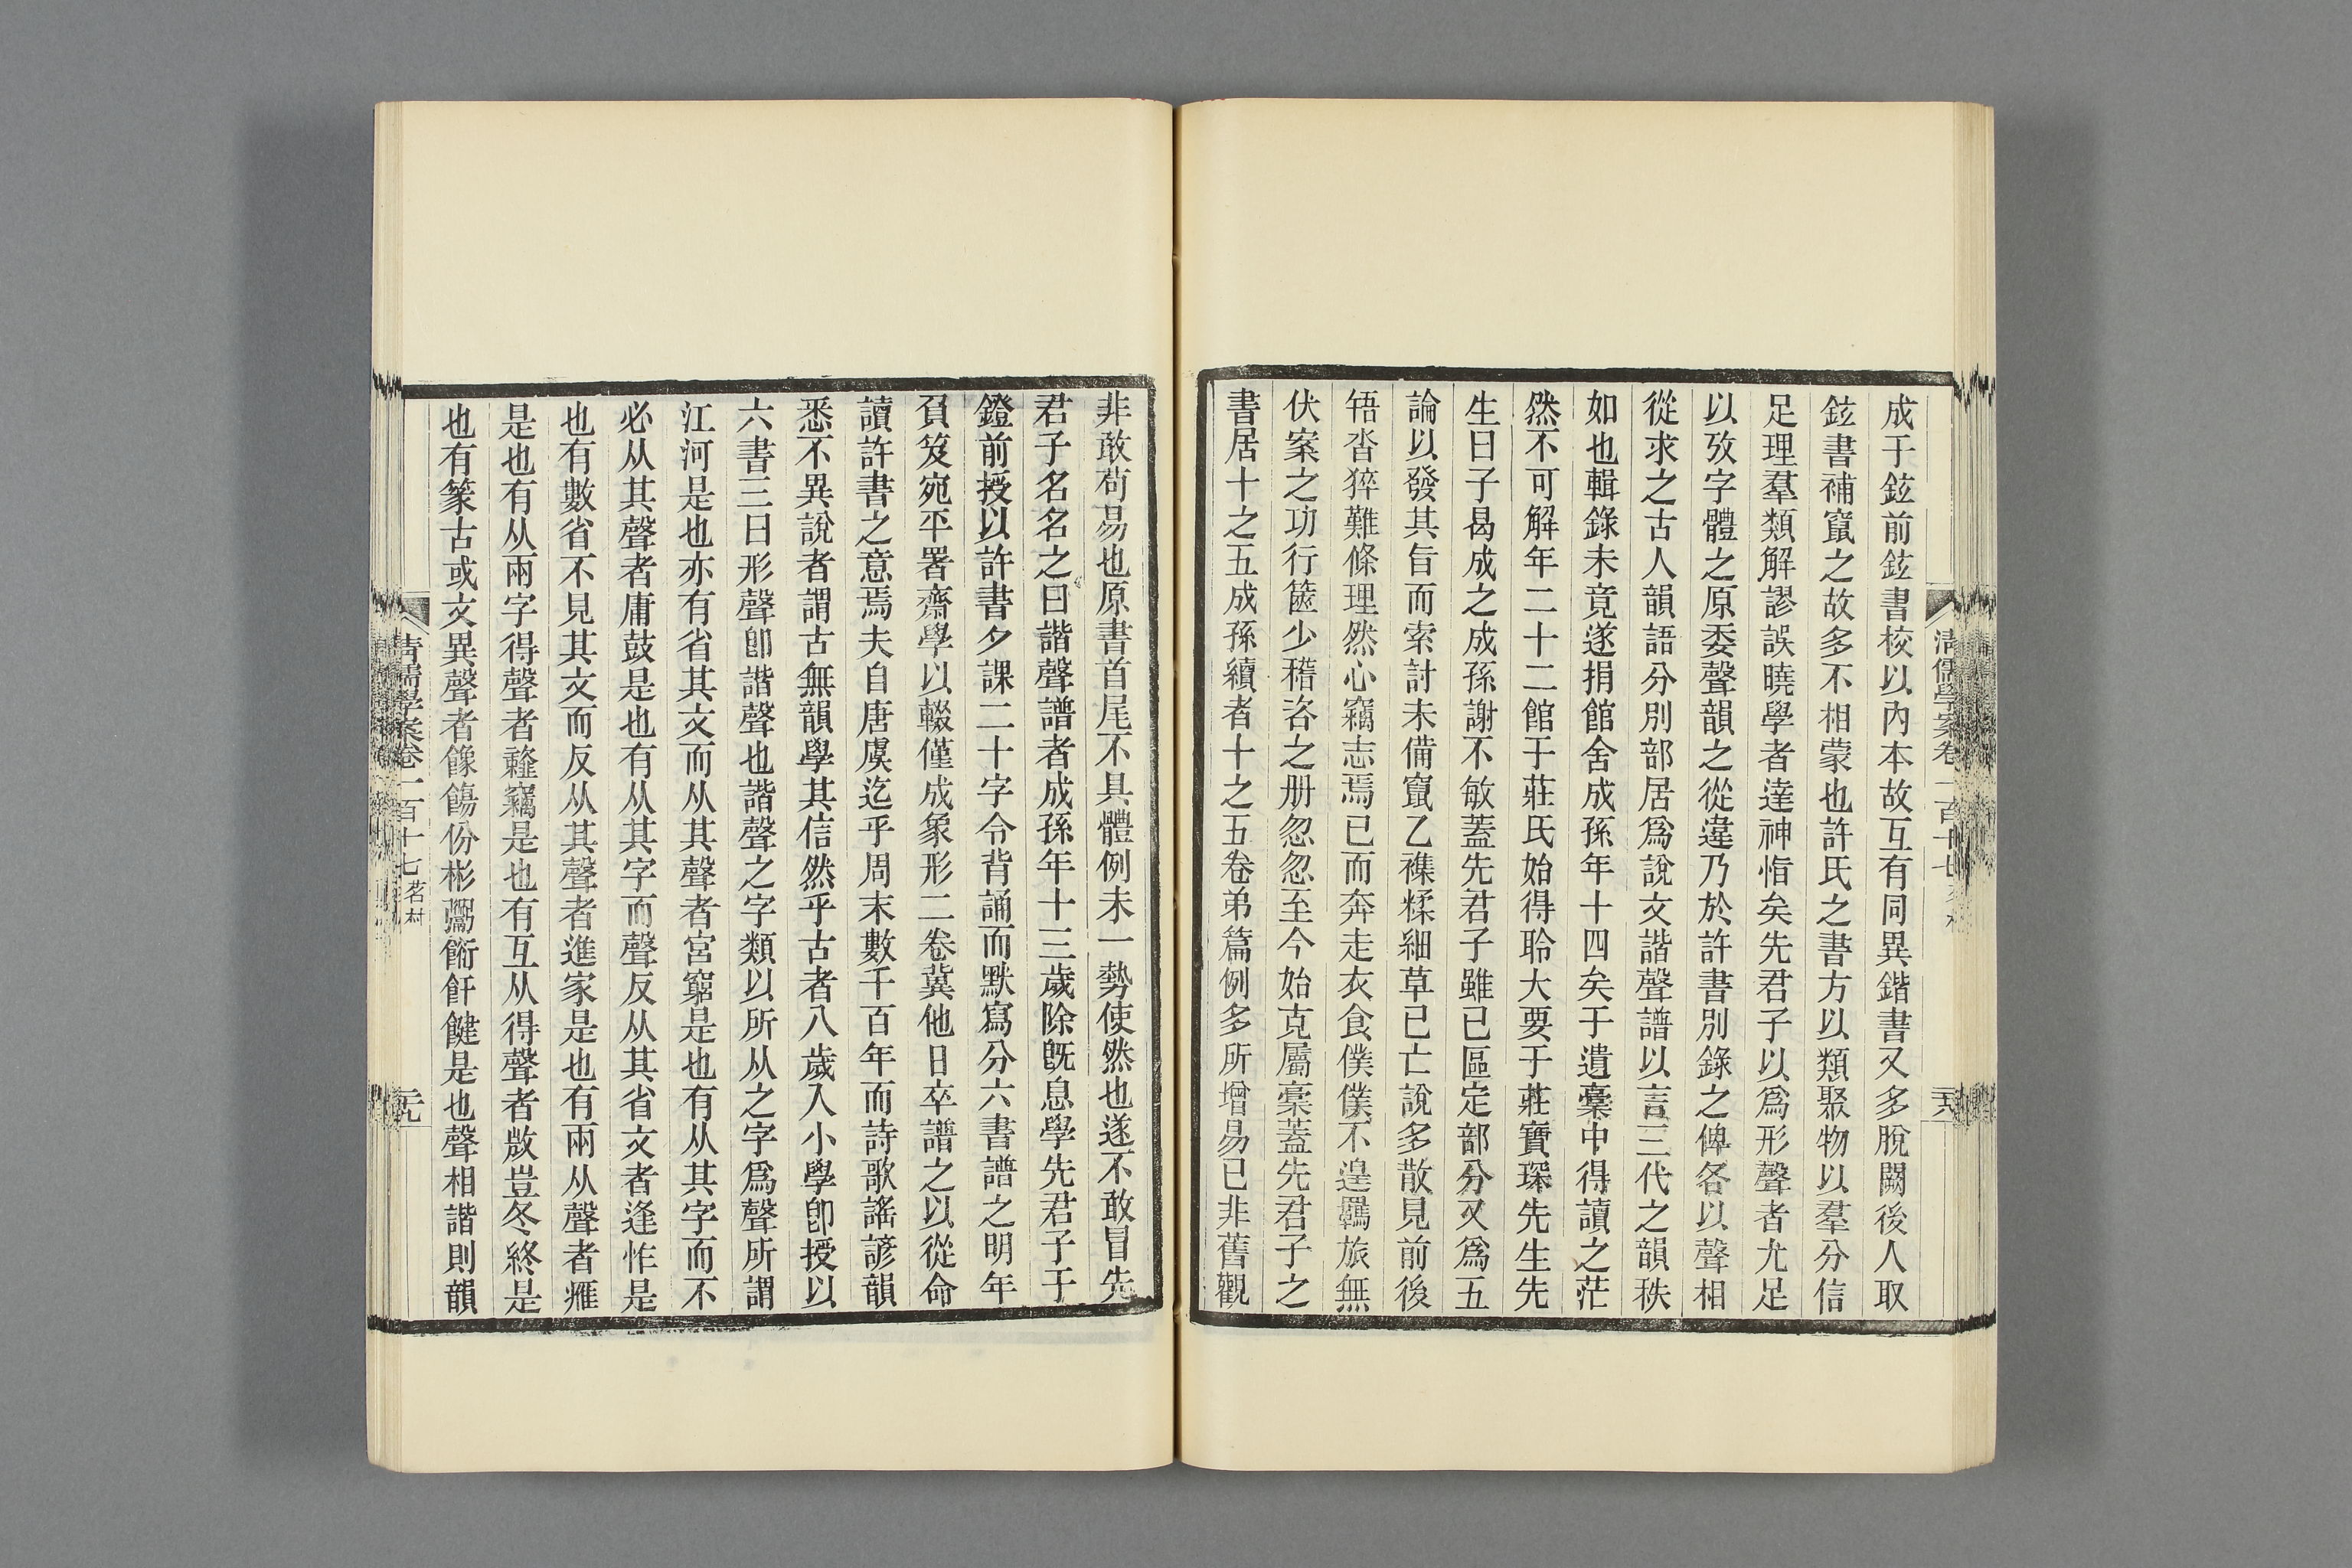 成于鉉前鉉書校以內本故互有同異鍇書又多脫闕後人取
鉉書補竄之故多不相蒙也許氏之書方以類聚物以羣分信
足理羣類解謬誤曉學者達神恉矣先君子以爲形聲者尤足
以攷字體之原委聲韻之從違乃於許書別錄之俾各以聲相
從求之古人韻語分別部居爲說文諧聲譜以言三代之韻秩
如也輯錄未竟遂捐館舍成孫年十四矣于遺稾中得讀之茫
然不可解年二十二館于莊氏始得聆大要于莊寶琛先生先
生曰子曷成之成孫謝不敏蓋先君子雖已區定部分又爲五
論以發其旨而索討未備竄乙襍糅細草已亡說多散見前後
啎沓猝難條理然心竊志焉已而奔走衣食僕僕不遑羈旅無
伏案之功行篋少稽咨之册忽忽至今始克屬稾蓋先君子之
書居十之五成孫續者十之五卷弟篇例多所增易已非舊觀
清儒學案卷一百十七
二十八
非敢苟易也原書首尾不具體例未一勢使然也遂不敢冒先
君子名名之曰諧聲譜者成孫年十三歲除旣息學先君子于
鐙前授以許書夕課二十字令背誦而默寫分六書譜之明年
負笈宛平署齋學以輟僅成象形二卷冀他日卒譜之以從命
讀許書之意焉夫自唐虞迄乎周末數千百年而詩歌謠諺韻
悉不異說者謂古無韻學其信然乎古者八歲入小學卽授以
六書三曰形聲卽諧聲也諧聲之字類以所从之字爲聲所謂
江河是也亦有省其文而从其聲者宮竆是也有从其字而不
必从其聲者庸鼓是也有从其字而聲反从其省文者逢怍是
也有數省不見其文而反从其聲者進家是也有兩从聲者癰
是也有从兩字得聲者韰竊是也有互从得聲者敳豈冬終是
也有篆古或文異聲者餯餳份彬鬻䭈飦鍵是也聲相諧則韻
清儒學案卷一百十七 茗柯
二十九